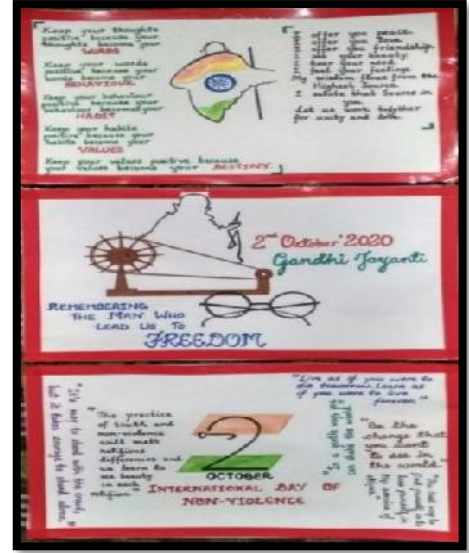 Keep your thoughts
positive because your
thoughts become your
WORDS
Keep your words
positive because your
words become your
BEHAVIOUR
Keep your behaviour
positive because your
behaviour becomes your
HABIT
Keep your habits
positive because your
habits become your
VALUES
Keep your values positive because
your values become your DESTINY.
I offer you peace.
I offer you love.
I offer you friendship.
I see your beauty.
I hear your need.
I feel your feelings.
My wisdom flows from the
Highest Source.
I salute that Source in
you.
Let us work together
for unity and love.
2nd October' 2020
Gandhi Jayanti
REMEMBERING
THE MAN WHO
LEAD US TO
FREEDOM
"It's easy to stand with the crowd,
but it takes courage to stand alone."
"The practice
of truth and
non-violence
will melt
religious
differences and
we learn to
see beauty
in each
religion"
2
OCTOBER
INTERNATIONAL DAY OF
NON-VIOLENCE
"Live as if you were to
die tomorrow. Learn as
if you were to live
forever."
"Be the
change that
you want
to see in
the world."
"The best way to
find yourself is to
lose yourself in
the service of
others"